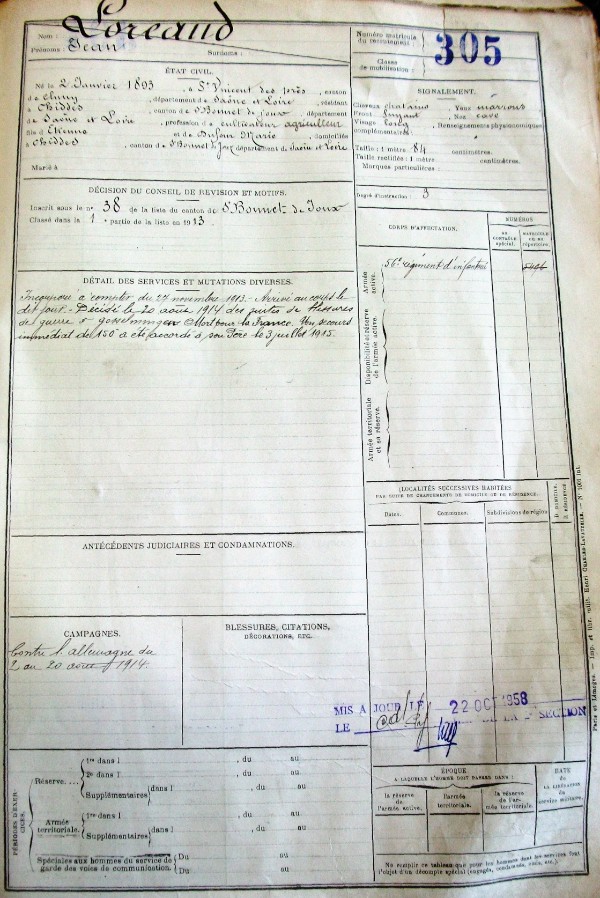 Nom : Loreaud
Prénoms : Jean Surnoms :
Numéro matricule du recrutement : 305
Classe de mobilisation :
ÉTAT CIVIL.
Né le 2 Janvier 1893, à St Vincent des prés, canton
de Cluny, département de Saône et Loire, résidant
à Chiddes, canton de St Bonnet de Joux, département
de Saône et Loire, profession de cultivateur agriculteur
fils de Etienne et de Dufour Marie, domiciliés
à Chiddes, canton de St Bonnet de Joux département de Saône et Loire
Marié à
SIGNALEMENT.
Cheveux châtains Yeux marrons
Front fuyant Nez cave
Visage long Renseignements physionomiques
complémentaires :
Taille : 1 mètre 84 centimètres.
Taille rectifiée : 1 mètre centimètres.
Marques particulières :
Degré d'instruction : 3
DÉCISION DU CONSEIL DE RÉVISION ET MOTIFS.
Inscrit sous le no 38 de la liste du canton de St Bonnet de Joux
Classé dans la 1 partie de la liste en 1913
CORPS D'AFFECTATION.
NUMÉROS
AU CONTRÔLE SPÉCIAL.
MATRICULE OU AU RÉPERTOIRE.
Armée active.
56e régiment d'infanterie
Disponibilité et réserve de l'armée active.
Armée territoriale et sa réserve.
DÉTAIL DES SERVICES ET MUTATIONS DIVERSES.
Incorporé à compter du 27 novembre 1913. Arrivé au corps le
dit jour. Décédé le 20 août 1914 des suites de blessures
de guerre à Gosselmingen Mort pour la France. Un secours
immédiat de 150f a été accordé à son Père le 3 juillet 1915.
LOCALITÉS SUCCESSIVES HABITÉES
PAR SUITE DE CHANGEMENTS DE DOMICILE OU DE RÉSIDENCE.
Dates. Communes. Subdivisions de région D. DOMICILE. R. RÉSIDENCE
ANTÉCÉDENTS JUDICIAIRES ET CONDAMNATIONS.
CAMPAGNES.
Contre l'allemagne du
2 au 20 août 1914.
BLESSURES, CITATIONS,
DÉCORATIONS, ETC.
MIS A JOUR LE 22 OCT 1958
LE DE LA SECTION
PÉRIODES D'EXERCICES.
Réserve....
1re dans l , du au
2e dans l , du au
Supplémentaires dans l , du au
Armée territoriale.
1re dans l , du au
Supplémentaires dans l , du au
Spéciales aux hommes du service de
garde des voies de communication.
Du au
Du au
ÉPOQUE
A LAQUELLE L'HOMME DOIT PASSER DANS :
la réserve de l'armée active.
l'armée territoriale.
la réserve de l'armée territoriale.
DATE
de
LA LIBÉRATION
du
service militaire.
Ne remplir ce tableau que pour les hommes dont les services font
l'objet d'un décompte spécial (engagés, condamnés, omis, etc.).
Paris et Limoges. — Imp. et libr. milit. Henri CHARLES-LAVAUZELLE. — N°